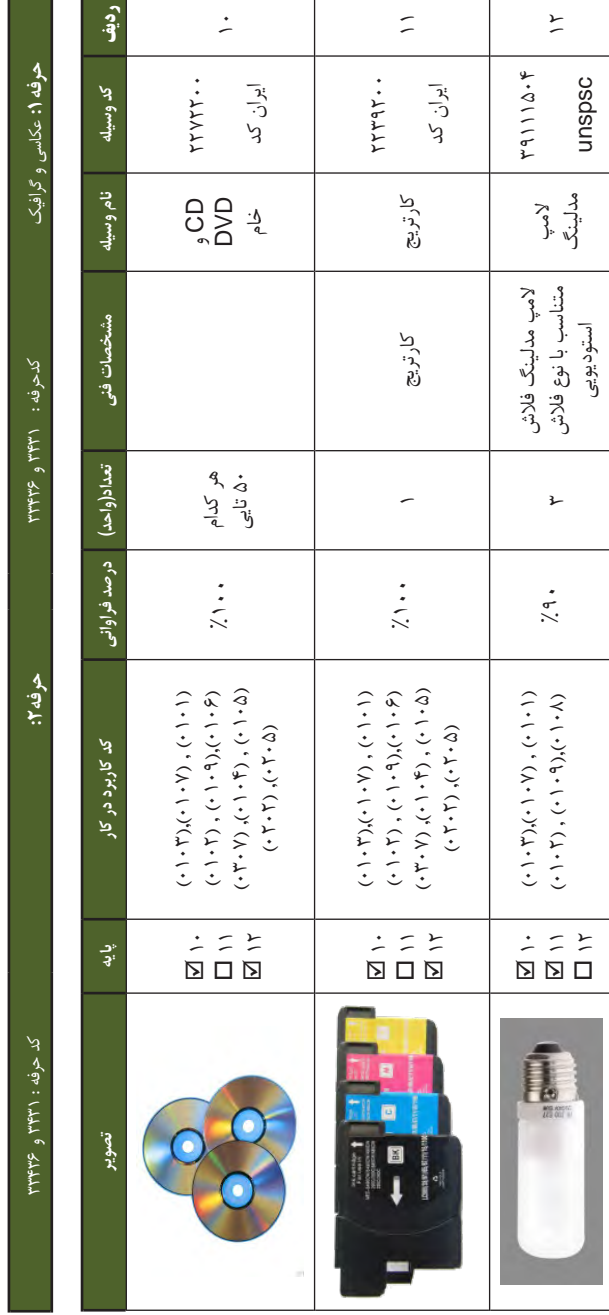 حرفه ۱: عکاسی و گرافیک
کدحرفه : ۳۴۳۱ و ۳۳۴۳۶
حرفه ۲:
کد حرفه : ۳۴۳۱ و ۳۳۴۳۶
ردیف
کد وسیله
نام وسیله
مشخصات فنی
تعداد(واحد)
درصد فراوانی
کد کاربرد در کار
پایه
تصویر
۱۰
۲۲۷۲۲۰۰
ایران کد
CD و
DVD
خام
هر کدام
۵۰ تایی
٪۱۰۰
(۰۱۰۳),(۰۱۰۷) , (۰۱۰۱)
(۰۱۰۲) , (۰۱۰۹),(۰۱۰۶)
(۰۳۰۷) ,(۰۱۰۴) , (۰۱۰۵)
(۰۲۰۲) ,(۰۲۰۵)
☑ ۱۰
☐ ۱۱
☑ ۱۲
۱۱
۲۲۳۹۲۰۰
ایران کد
کارتریج
کارتریج
۱
٪۱۰۰
(۰۱۰۳),(۰۱۰۷) , (۰۱۰۱)
(۰۱۰۲) , (۰۱۰۹),(۰۱۰۶)
(۰۳۰۷) ,(۰۱۰۴) , (۰۱۰۵)
(۰۲۰۲) ,(۰۲۰۵)
☑ ۱۰
☐ ۱۱
☑ ۱۲
BK
C
M
۱۲
۳۹۱۱۱۵۰۴
unspsc
لامپ
مدلینگ
لامپ مدلینگ فلاش
متناسب با نوع فلاش
استودیویی
۳
٪۹۰
(۰۱۰۳),(۰۱۰۷) , (۰۱۰۱)
(۰۱۰۲) , (۰۱۰۹),(۰۱۰۸)
☑ ۱۰
☑ ۱۱
☐ ۱۲